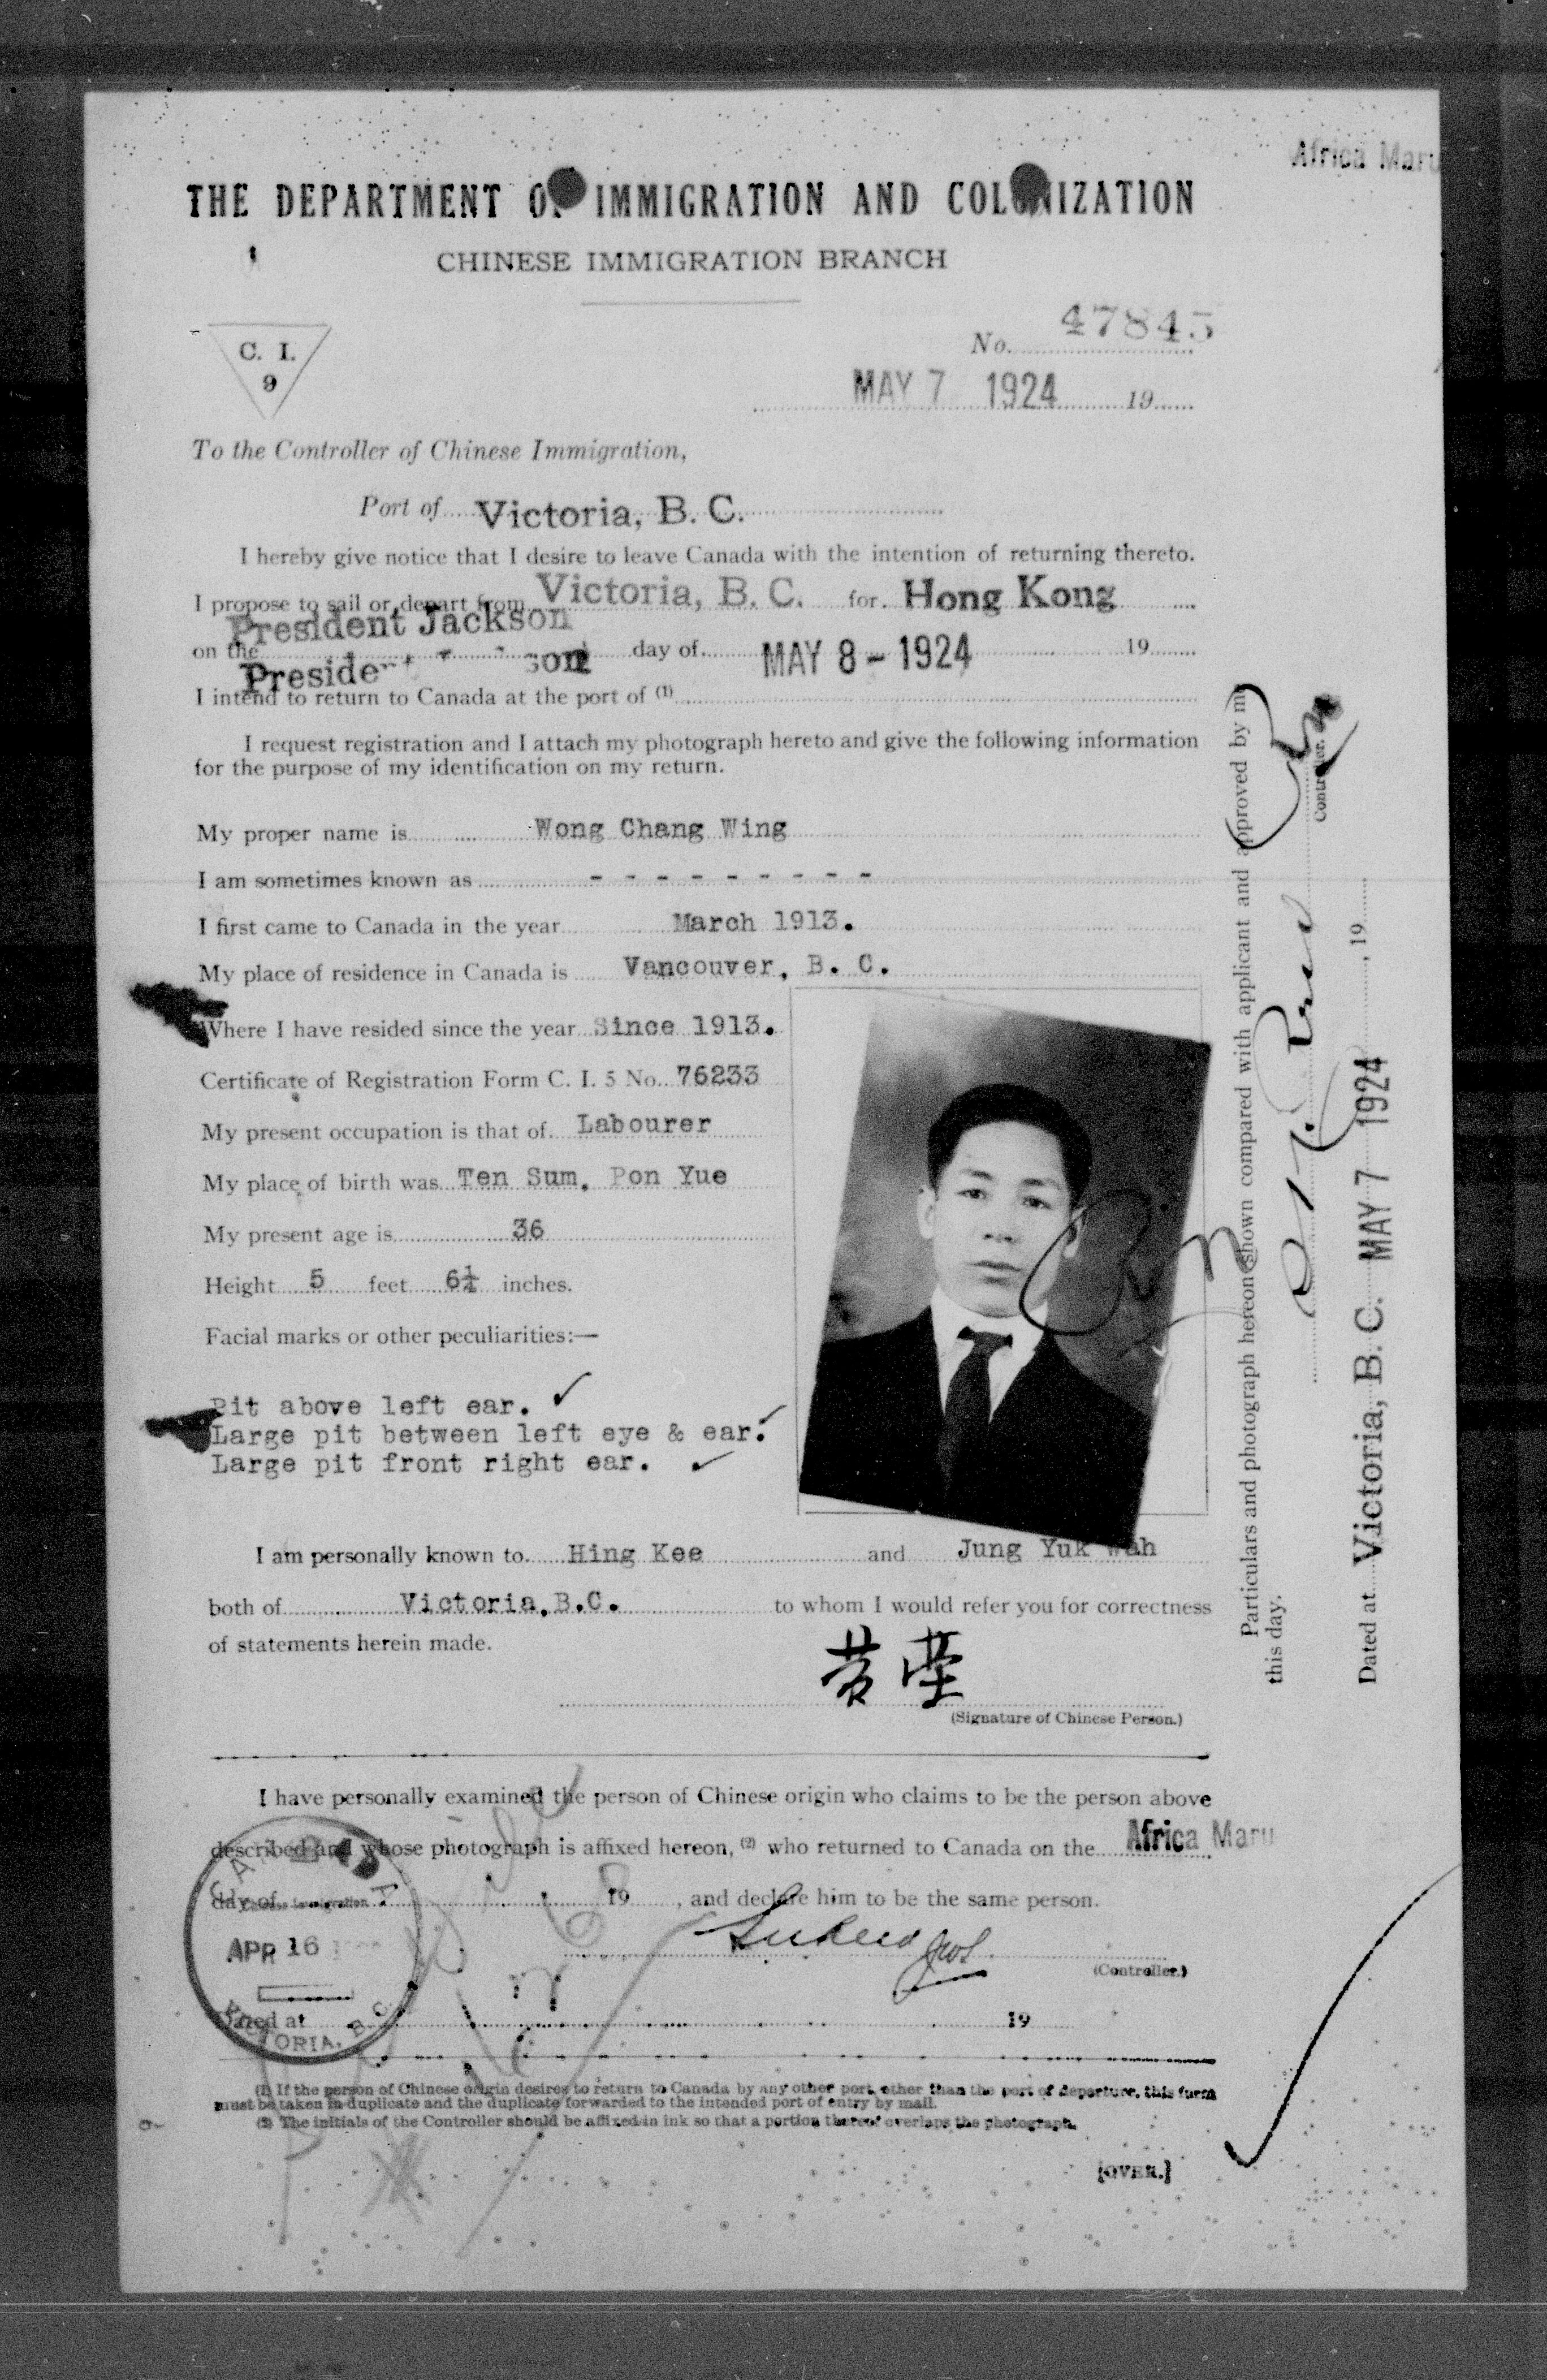 Africa Maru
THE DEPARTMENT OF IMMIGRATION AND COLONIZATION
CHINESE IMMIGRATION BRANCH
C. I.
9
No. 47845
MAY 7 1924 19
To the Controller of Chinese Immigration,
Port of Victoria, B. C.
I hereby give notice that I desire to leave Canada with the intention of returning thereto.
I propose to sail or depart from Victoria, B. C. for Hong Kong
President Jackson
on the day of MAY 8 - 1924 19
President
I intend to return to Canada at the port of (1)
I request registration and I attach my photograph hereto and give the following information
for the purpose of my identification on my return.
My proper name is Wong Chang Wing
I am sometimes known as - - - - - - - - -
I first came to Canada in the year March 1913.
My place of residence in Canada is Vancouver, B. C.
Where I have resided since the year Since 1913.
Certificate of Registration Form C. I. 5 No. 76233
My present occupation is that of Labourer
My place of birth was Ten Sum, Pon Yue
My present age is 36
Height 5 feet 6¼ inches.
Facial marks or other peculiarities:—
Pit above left ear. ✓
Large pit between left eye & ear. ✓
Large pit front right ear. ✓
I am personally known to Hing Kee and Jung Yuk Wah
both of Victoria, B.C. to whom I would refer you for correctness
of statements herein made.
(Signature of Chinese Person.)
I have personally examined the person of Chinese origin who claims to be the person above
described and whose photograph is affixed hereon, (2) who returned to Canada on the Africa Maru
day of 19 , and declare him to be the same person.
(Controller.)
Dated at 19
CANADA
Chinese Immigration
APR 16
VICTORIA, B.C.
(1) If the person of Chinese origin desires to return to Canada by any other port other than the port of departure, this form
must be taken in duplicate and the duplicate forwarded to the intended port of entry by mail.
(2) The initials of the Controller should be affixed in ink so that a portion thereof overlaps the photograph.
[OVER.]
Particulars and photograph hereon shown compared with applicant and approved by me
this day.
Controller.
Dated at Victoria, B. C. MAY 7 1924 , 19